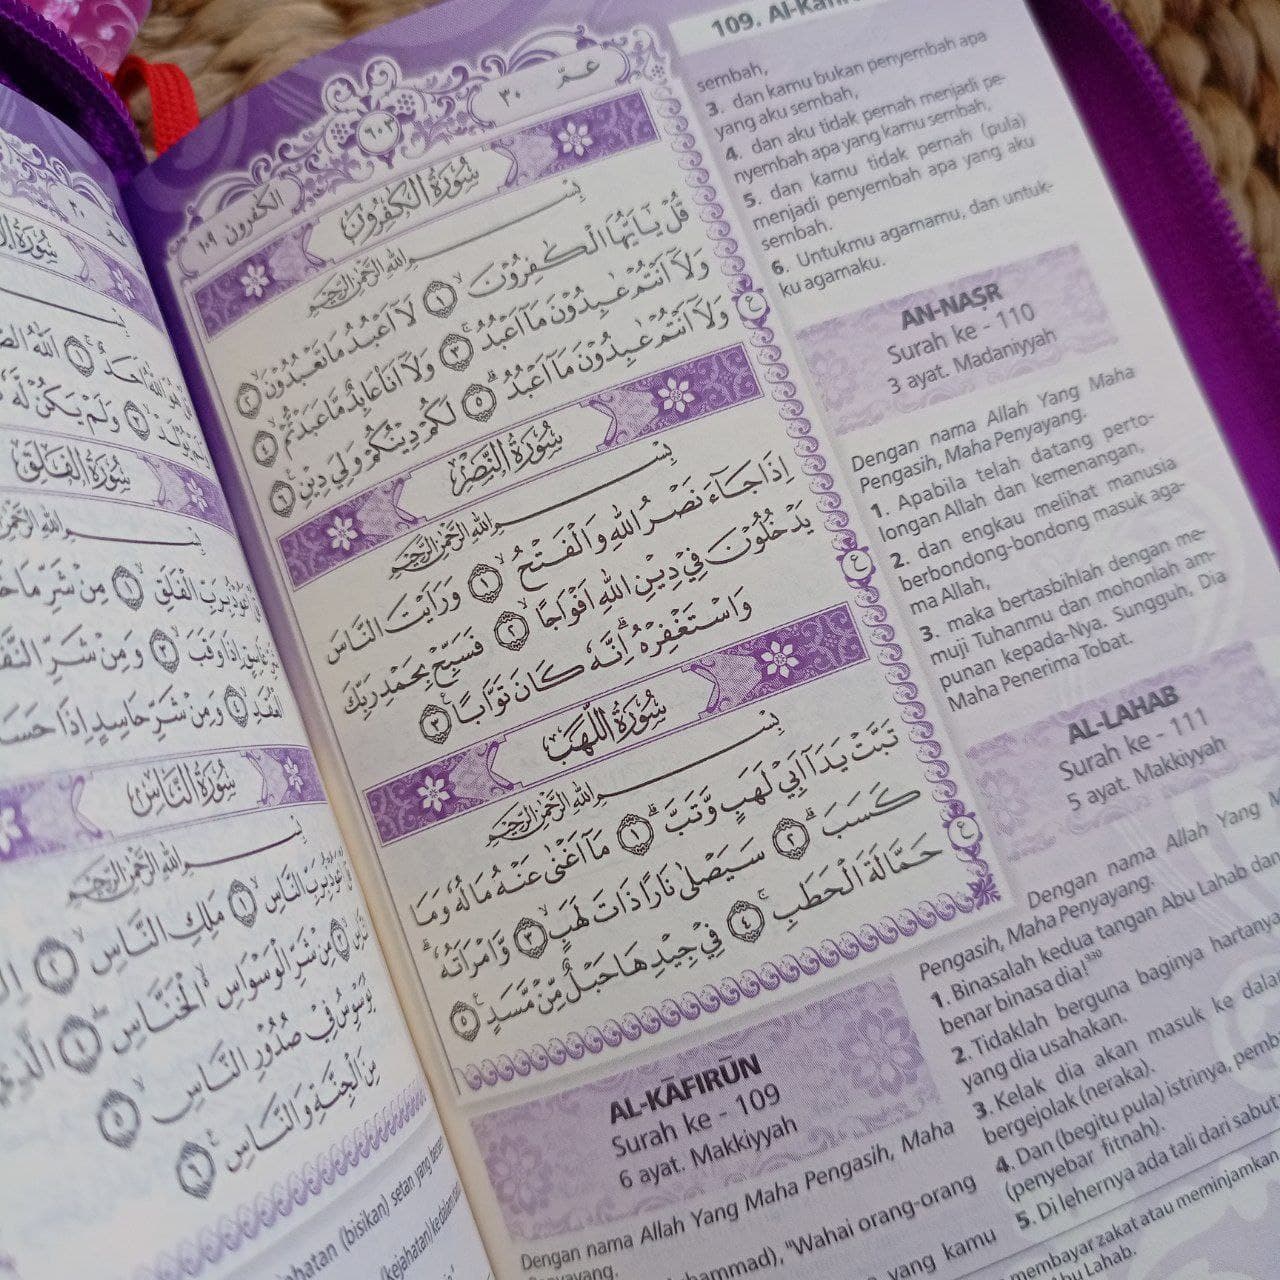 عمّ ٣٠
٦٠٣
الكٰفرون ١٠٩
سُوْرَةُ الْكٰفِرُوْنَ
بِسْمِ اللّٰهِ الرَّحْمٰنِ الرَّحِيْمِ
قُلْ يٰٓاَيُّهَا الْكٰفِرُوْنَۙ ١ لَآ اَعْبُدُ مَا تَعْبُدُوْنَۙ ٢
وَلَآ اَنْتُمْ عٰبِدُوْنَ مَآ اَعْبُدُۚ ٣ وَلَآ اَنَا۠ عَابِدٌ مَّا عَبَدْتُّمْۙ ٤
وَلَآ اَنْتُمْ عٰبِدُوْنَ مَآ اَعْبُدُۗ ٥ لَكُمْ دِيْنُكُمْ وَلِيَ دِيْنِ ٦
سُوْرَةُ النَّصْرِ
بِسْمِ اللّٰهِ الرَّحْمٰنِ الرَّحِيْمِ
اِذَا جَاۤءَ نَصْرُ اللّٰهِ وَالْفَتْحُۙ ١ وَرَاَيْتَ النَّاسَ
يَدْخُلُوْنَ فِيْ دِيْنِ اللّٰهِ اَفْوَاجًاۙ ٢ فَسَبِّحْ بِحَمْدِ رَبِّكَ
وَاسْتَغْفِرْهُۗ اِنَّهٗ كَانَ تَوَّابًا ٣
سُوْرَةُ اللَّهَبِ
بِسْمِ اللّٰهِ الرَّحْمٰنِ الرَّحِيْمِ
تَبَّتْ يَدَآ اَبِيْ لَهَبٍ وَّتَبَّۗ ١ مَآ اَغْنٰى عَنْهُ مَالُهٗ وَمَا
كَسَبَۗ ٢ سَيَصْلٰى نَارًا ذَاتَ لَهَبٍۙ ٣ وَّامْرَاَتُهٗۗ
حَمَّالَةَ الْحَطَبِۚ ٤ فِيْ جِيْدِهَا حَبْلٌ مِّنْ مَّسَدٍ ٥
AL-KĀFIRŪN
Surah ke - 109
6 ayat. Makkiyyah
Dengan nama Allah Yang Maha Pengasih, Maha
"Wahai orang-orang
yang kamu
109.
sembah,
3. dan kamu bukan penyembah apa
yang aku sembah,
4. dan aku tidak pernah menjadi pe-
nyembah apa yang kamu sembah,
5. dan kamu tidak pernah (pula)
menjadi penyembah apa yang aku
sembah.
6. Untukmu agamamu, dan untuk-
ku agamaku.
AN-NAṢR
Surah ke - 110
3 ayat. Madaniyyah
Dengan nama Allah Yang Maha
Pengasih, Maha Penyayang.
1. Apabila telah datang perto-
longan Allah dan kemenangan,
2. dan engkau melihat manusia
berbondong-bondong masuk aga-
ma Allah,
3. maka bertasbihlah dengan me-
muji Tuhanmu dan mohonlah am-
punan kepada-Nya. Sungguh, Dia
Maha Penerima Tobat.
AL-LAHAB
Surah ke - 111
5 ayat. Makkiyyah
Dengan nama Allah Yang
Pengasih, Maha Penyayang.
1. Binasalah kedua tangan Abu Lahab dan
benar binasa dia!
2. Tidaklah berguna baginya hartanya
yang dia usahakan.
3. Kelak dia akan masuk ke
bergejolak (neraka).
4. Dan (begitu pula) istrinya,
(penyebar fitnah).
5. Di lehernya ada tali dari sabut
membayar zakat atau meminjamkan
Abu Lahab.
سُوْرَةُ
اللّٰهُ
وَلَمْ يَكُنْ لَّهٗ
سُوْرَةُ الْفَلَقِ
بِرَبِّ الْفَلَقِۙ ١ مِنْ شَرِّ مَا
اِذَا وَقَبَۙ ٣ وَمِنْ شَرِّ
وَمِنْ شَرِّ حَاسِدٍ اِذَا حَسَدَ
سُوْرَةُ النَّاسِ
بِسْمِ اللّٰهِ الرَّحْمٰنِ الرَّحِيْمِ
بِرَبِّ النَّاسِۙ ١ مَلِكِ النَّاسِۙ ٢
مِنْ شَرِّ الْوَسْوَاسِ الْخَنَّاسِۖ ٤ الَّذِيْ
يُوَسْوِسُ فِيْ صُدُوْرِ النَّاسِۙ ٥
مِنَ الْجِنَّةِ وَالنَّاسِ ٦
(bisikan) setan yang
(kejahatan)